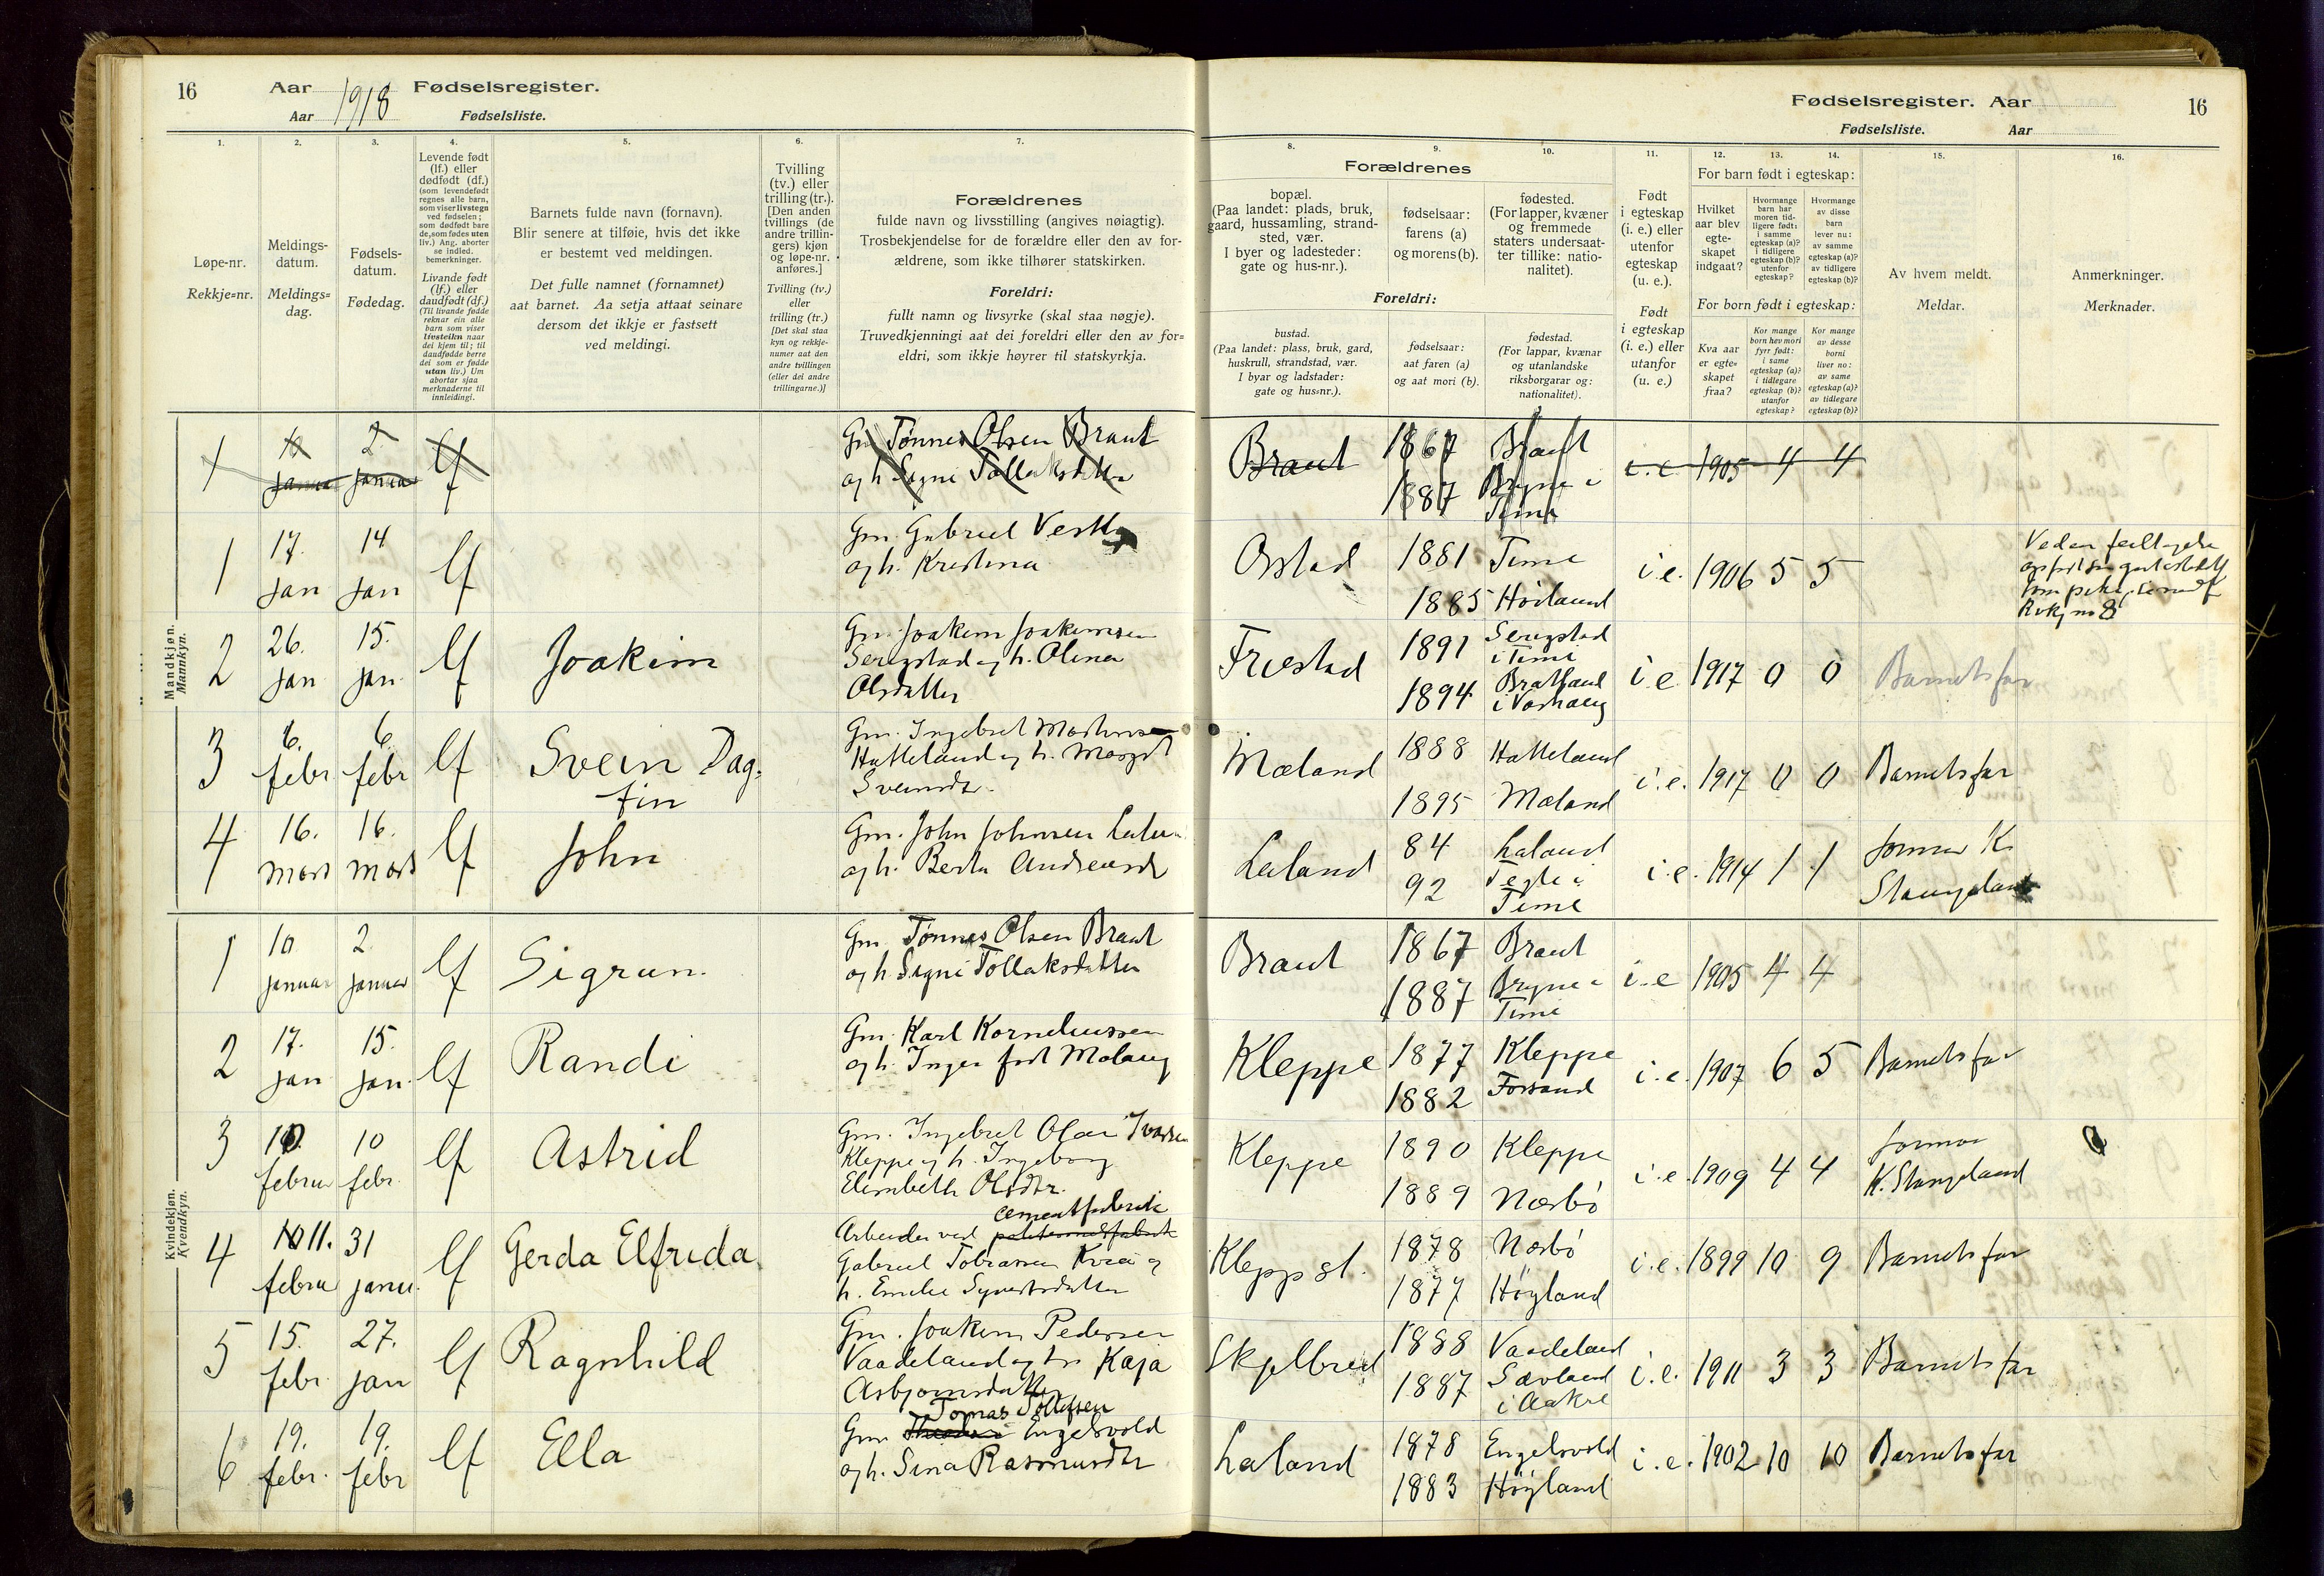 16
Aar 1918 Fødselsregister.
Aar Fødselsliste.
Fødselsregister. Aar
16
Fødselsliste. Aar
1.
2.
3.
4.
5.
6.
7.
8.
9.
10.
11.
12.
13.
14.
15.
16.
Løpe-nr.
Rekkje=nr.
Meldings-
datum.
Meldings=
dag.
Fødsels-
datum.
Fødedag.
Levende født
(lf.) eller
dødfødt (df.)
(som levendefødt
regnes alle barn,
som viser livstegn
ved fødselen;
som dødfødt bare
de, som fødes uten
liv.) Ang. aborter
se indled.
bemerkninger.
Livande født
(lf.) eller
daudfødt (df.)
(Til livande fødde
reknar ein alle
barn som viser
livsteikn naar
dei kjem til; til
daudfødde berre
dei som er fødde
utan liv.) Um
abortar sjaa
merknaderne til
innleidingi.
Barnets fulde navn (fornavn).
Blir senere at tilføie, hvis det ikke
er bestemt ved meldingen.
Det fulle namnet (fornamnet)
aat barnet. Aa setja attaat seinare
dersom det ikkje er fastsett
ved meldingi.
Tvilling
(tv.) eller
trilling (tr.).
[Den anden
tvillings (de
andre trillin-
gers) kjøn
og løpe-nr.
anføres.]
Tvilling (tv.)
eller
trilling (tr.)
[Det skal staa
kyn og rekkje-
numer aat den
andre tvillingen
(eller dei andre
trillingarne.)]
Forældrenes
fulde navn og livsstilling (angives nøiagtig).
Trosbekjendelse for de forældre eller den av for-
ældrene, som ikke tilhører statskirken.
Foreldri:
fullt namn og livsyrke (skal staa nøgje).
Truvedkjenningi aat dei foreldri eller den av for=
eldri, som ikkje høyrer til statskyrkja.
Forældrenes
bopæl.
(Paa landet: plads, bruk,
gaard, hussamling, strand-
sted, vær.
I byer og ladesteder:
gate og hus-nr.).
fødselsaar:
farens (a)
og morens (b).
fødested.
(For lapper, kvæner
og fremmede
staters undersaat-
ter tillike: natio-
nalitet).
Foreldri:
bustad.
(Paa landet: plass, bruk, gard,
huskrull, strandstad, vær.
I byar og ladstader:
gate og hus=nr.).
fødselsaar:
aat faren (a)
og aat mori (b).
fødestad.
(For lappar, kvænar
og utanlandske
riksborgarar og:
nationalitet).
Født
i egteskap
(i. e.) eller
utenfor
egteskap
(u. e.).
Født
i egteskap
(i. e.) eller
utanfor
(u. e.)
For barn født i egteskap:
Hvilket
aar blev
egte-
skapet
indgaat?
Hvormange
barn har
moren tid-
ligere født:
i samme
egteskap (a)?
i tidligere
egteskap (b)?
utenfor
egteskap?
Hvormange
av disse
barn
lever nu:
av samme
egteskap (a)?
av tidligere
egteskap (b)?
For born født i egteskap:
Kva aar
er egte-
skapet
fraa?
Kor mange
born hev mori
fyrr født:
i same
egteskap (a)?
i tidlegare
egteskap (b)?
utanfor
egteskap?
Kor mange
av desse
borni
liver no:
av same
egteskap (a)?
av tidlegare
egteskap (b)?
Av hvem meldt.
Meldar.
Anmerkninger.
Merknader.
Mandkjøn.
Mannkyn.
1 10 januar 2 januar lf
Gm Tønnes Olsen Braut
og h. Signi Tollaksdatter
Braut 1867 Braut i.e. 1905 4 4
1887 Bryne i
Time
1 17. jan 14 jan lf
Gm. Gabriel Vestly
og h. Kristina
Orstad 1881 Time i.e. 1906 5 5
1885 Høiland
2 26. jan 15. jan. lf Joakim
Gm. Joakim Joakimsen
Serigstad og h. Olina
Olsdatter
Frøstad 1891 Serigstad
i Time
1894 Bratland
i Varhaug
i.e. 1917 0 0 Barnets far
3 6. febr 6. febr lf Svein Dag-
fin
Gm. Ingebret
Hatteland og h.
Sveinsdtr.
Mæland 1888 Hatteland
1895 Mæland
i.e. 1917 0 0 Barnets far
4 16. mars 16. mars lf John
Gm. John Johnsen Laland
og h. Berta Andreasdt
Laland 84 Laland
92 Tegle i
Time
i.e. 1914 1 1 Jormor K.
Stangeland
Kvindekjøn.
Kvendkyn.
1 10 januar 2 januar lf Sigrun.
Gm. Tønnes Olsen Braut
og h. Signi Tollaksdatter
Braut 1867 Braut
1887 Bryne i
Time
i.e 1905 4 4
2 17. jan 15. jan. lf Randi
Gm. Karl Korneliussen
og h. Inger født Molaug
Kleppe 1877 Kleppe
1882 Forsand
i.e. 1907 6 5 Barnets far
3 10. februar 10 febr. lf Astrid
Gm. Ingebret Olai Ivarsen
Kleppe og h. Ingeborg
Elisabeth Olsdtr.
Kleppe 1890 Kleppe
1889 Nærbø
i.e. 1909 4 4 Jormor
K. Stangeland
4 10 11. februar 31 januar. lf Gerda Elfrida.
cementfabrik
Arbeider ved
Gabriel Tobiassen Kvia og
h. Emilie Syvertsdatter
Klepp st. 1878 Nærbø
1877 Høyland
i.e. 1899 10 9 Barnets far
5 15. febr. 27. jan lf Ragnhild
Gm. Joakim Pedersen
Vaadeland og h. Kaja
Asbjørnsdatter
Skjelbred 1888 Vaadeland
1887 Sævland
i Aakre
i.e. 1911 3 3 Barnets far
6 19. febr. 19. febr lf Ella
Tomas Tollefsen
Gm. Engelsvold
og h. Sina Rasmusdtr
Laland 1878 Engelsvold
1883 Høyland
i.e. 1902 10 10 Barnets far